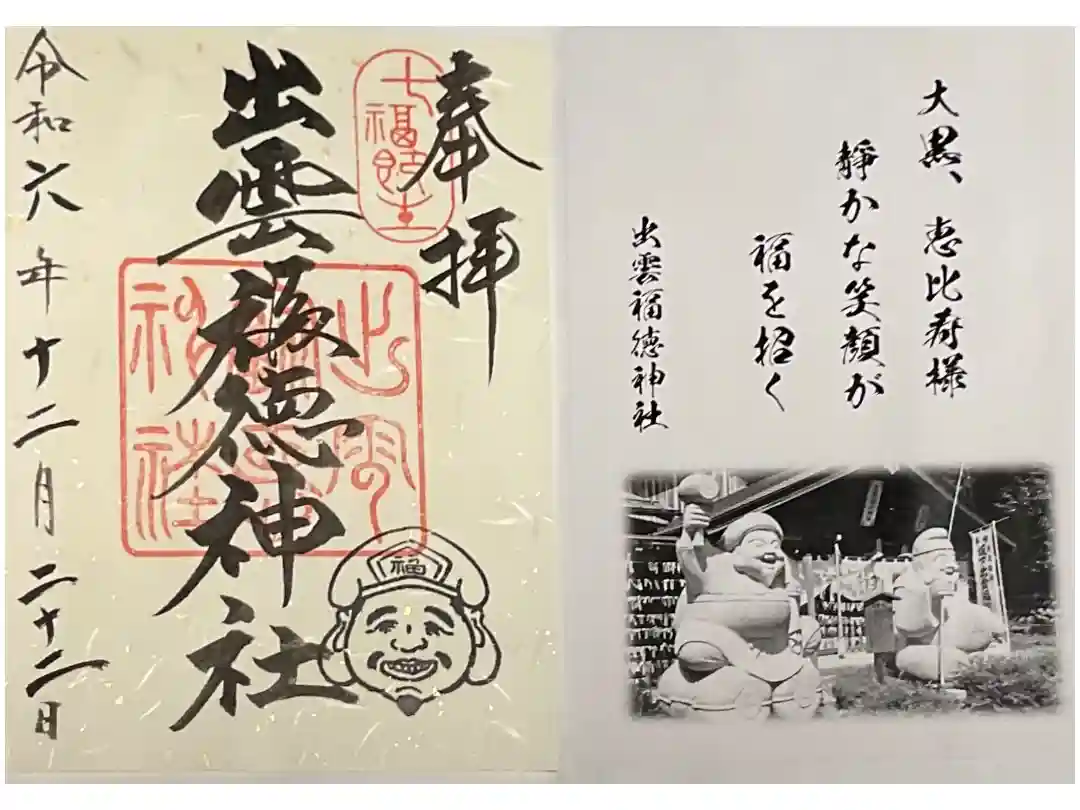 奉拝
七福臨土
出雲福徳神社
令和六年十二月二十二日
福
大黒、恵比寿様
静かな笑顔が
福を招く
出雲福徳神社